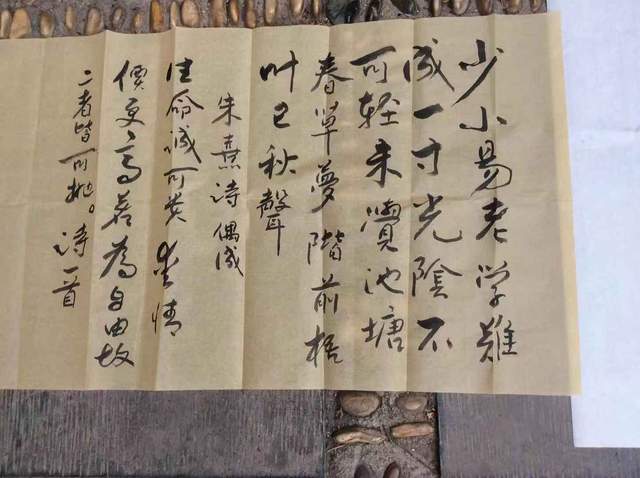 少小易老学難
成一寸光陰不
可轻未覺池塘
春草夢階前梧
叶已秋聲
朱熹诗偶成
生命诚可贵爱情
價更高若為自由故
二者皆可抛。诗一首